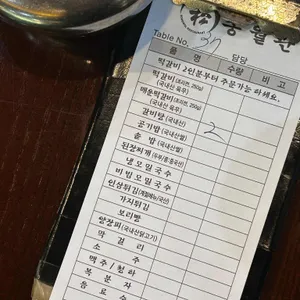 송 궁월분
Table No. 30 담당
품 명 수량 비고
떡갈비 2인분부터 주문가능 하세요.
떡갈비(조리전, 250g)
(국내산 육우)
매운떡갈비(조리전, 250g)
(국내산 육우)
갈비탕(국내산) 2
공기밥(국내산쌀)
솥 밥(국내산쌀)
된장찌개
냉모밀국수
비빔모밀국수
인삼튀김
가지튀김
보리빵
양장피(국내산닭고기)
막 걸 리
소 주
맥주/청하
복 분 자
음 료 수